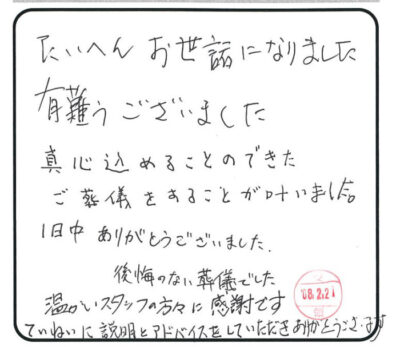 たいへん お世話になりました
有難うございました
真心込めることのできた
ご葬儀をすることが叶いました。
1日中 ありがとうございました.
後悔のない葬儀でした
'08.2.21
温かいスタッフの方々に感謝です
ていねいに説明とアドバイスをしていただきありがとうございます